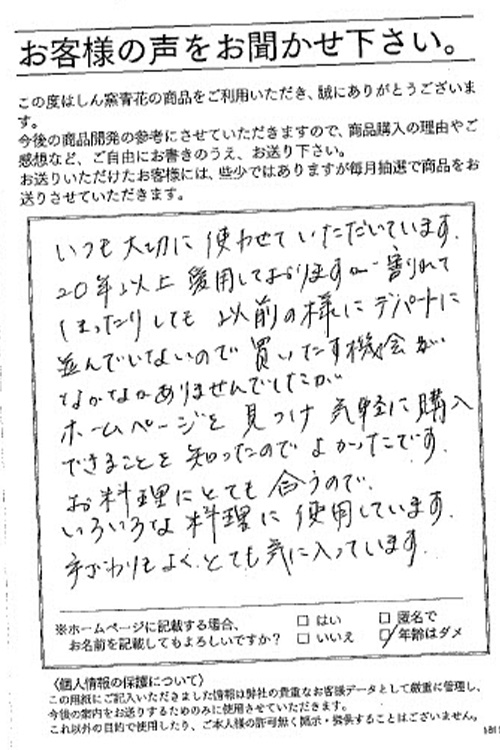 お客様の声をお聞かせ下さい。
この度はしん窯青花の商品をご利用いただき、誠にありがとうございま
す。
今後の商品開発の参考にさせていただきますので、商品購入の理由やご
感想など、ご自由にお書きのうえ、お送り下さい。
お送りいただけたお客様には、些少ではありますが毎月抽選で商品をお
送りさせていただきます。
いつも大切に使わせていただいています.
20年以上愛用しておりますが 割れて
しまったりしても 以前の様にデパートに
並んでいないので買いたす機会が
なかなかありませんでしたが
ホームページを見つけ気軽に購入
できることを知ったのでよかったです.
お料理にとても合うので.
いろいろな料理に使用しています.
手ざわりもよく.とても気に入っています.
※ホームページに記載する場合、
お名前を記載してもよろしいですか？
□ はい □ 匿名で
□ いいえ □ 年齢はダメ
〈個人情報の保護について〉
この用紙にご記入いただきました情報は弊社の貴重なお客様データとして厳重に管理し、
今後の案内をお送りするためのみに使用させていただきます。
これ以外の目的で使用したり、ご本人様の許可無く開示・提供することはございません。